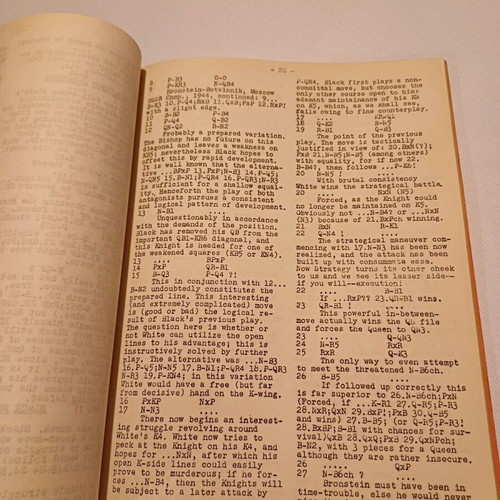 - 26 -
8 P-B3 O-O
9 P-KR3 N-QR4
Bronstein-Botvinnik, Moscow
USSR Chmp., 1944, continued: 9...
B-K3 10.P-Q4;BxB 11.QxB;PxP 12.NxP!
with a slight edge.
10 B-B2 P-B4
11 P-Q4 Q-B2
12 QN-Q2 B-N2
Probably a prepared variation.
The Bishop has no future on this
diagonal and leaves a weakness on
KB5; nevertheless Black hopes to
offset this by rapid development.
It is well known that the alterna-
tive ...BPxP 13.PxP;N-B3 14.P-Q5;
N-QN5 15.B-N1;P-QR4 16.P-QR3;N-R3
is sufficient for a shallow equal-
ity. Henceforth the play of both
antagonists pursues a consistent
and logical pattern of development.
13 N-B1 ....
Unquestionably in accordance
with the demands of the position.
Black has removed his QB from the
important QB1-KR6 diagonal, and
this Knight is headed for one of
the weakened squares (KB5 or KN4).
13 .... BPxP
14 PxP QR-B1
15 B-Q3 P-Q4 ?!
This in conjunction with 12...
B-N2 undoubtedly constitutes the
prepared line. This interesting
(and extremely complicated) move
is (good or bad) the logical re-
sult of Black's previous play.
The question here is whether or
not White can utilize the open
lines to his advantage; this is
instructively solved by further
play. The alternative was ...N-B3
16.P-Q5;N-N5 17.B-N1;P-QR4 18.P-QR3
N-R3 19.P-KN4; in this variation
White would have a free (but far
from decisive) hand on the K-wing.
16 PxKP NxP
17 N-N3 ....
There now begins an interest-
ing struggle revolving around
White's K4. White now tries to
peck at the Knight on his K4, and
hopes for ...NxN, after which his
open K-lines could easily
prove to be murderous; if he for-
ces ...N-B4, then the Knights will
be subject to a later attack by
P-QN4. Black first plays a non-
committal move, but chooses the
only other course open to him:
adamant maintainance of his KN
on K5, which, as we shall see,
fails owing to fine counterplay.
17 .... KR-Q1
18 Q-K2 B-N5
19 R-B1 Q-B3
The point of the previous
play. The move is tactically
justified in view of: 20.BxN(?);
PxB 21.N-B5;N-B5 (among others)
with equality, for if now 22.
B-R4?, then follows ...P-B3.
20 N-B5 !
With brutal consistency
White wins the strategical battle.
20 .... NxN (N5)
Forced, as the Knight could
no longer be maintained on K5.
Obviously not ...N-B4? or ...NxN
(N3) because of 21.BxPch winning.
21 BxN R-K1
22 Q-N4 ! ....
The strategical maneuver com-
mencing with 17.N-N3 has been now
realized, and the attack has been
built up with consummate ease.
Now Strategy turns its other cheek
to us and we see its lesser side--
if you will---execution!
22 .... B-B1
If ...RxP?? 23.QR-B1 wins.
23 QR-B1 ! ....
This powerful in-between-
move actually wins the QB file
and forces the Queen to QN3.
23 .... Q-QN3
24 N-R5 RxR
25 RxR Q-K3
The only way to even attempt
to meet the threatened N-B6ch.
26 B-B5 ....
If followed up correctly this
is far superior to 26.N-B6ch;PxN
(Forced, if ...K-R1 27.Q-R5;P-R3
28.NxR;QxN 29.BxP!;PxB 30.Q-B5
and wins) 27.B-B5; (or Q-R5;P-R3!
28.RxBP;B-B1 with chances for sur-
vival)QxB 28.QxQ;PxB 29.QxNPch;
B-N2, with 3 pieces for a Queen
although they are rather insecure.
26 ..... QxP
27 N-B6ch ? ....
Bronstein must have been in
time-trouble, else he would never